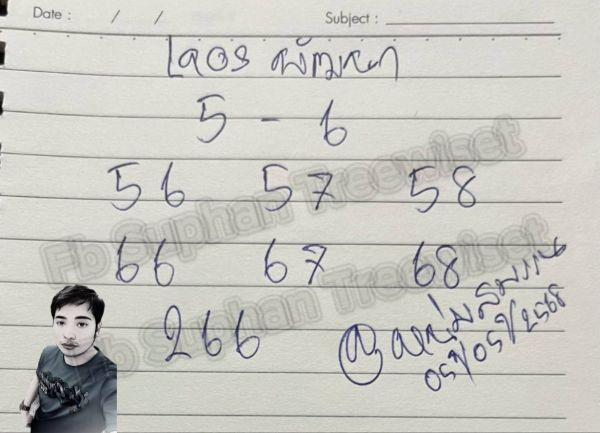 Date : / / Subject :
ลาว พัฒนา
5 - 6
56 57 58
66 67 68
266
05/05/2568
Fb Suphan Treewiset
Fb Suphan Treewiset